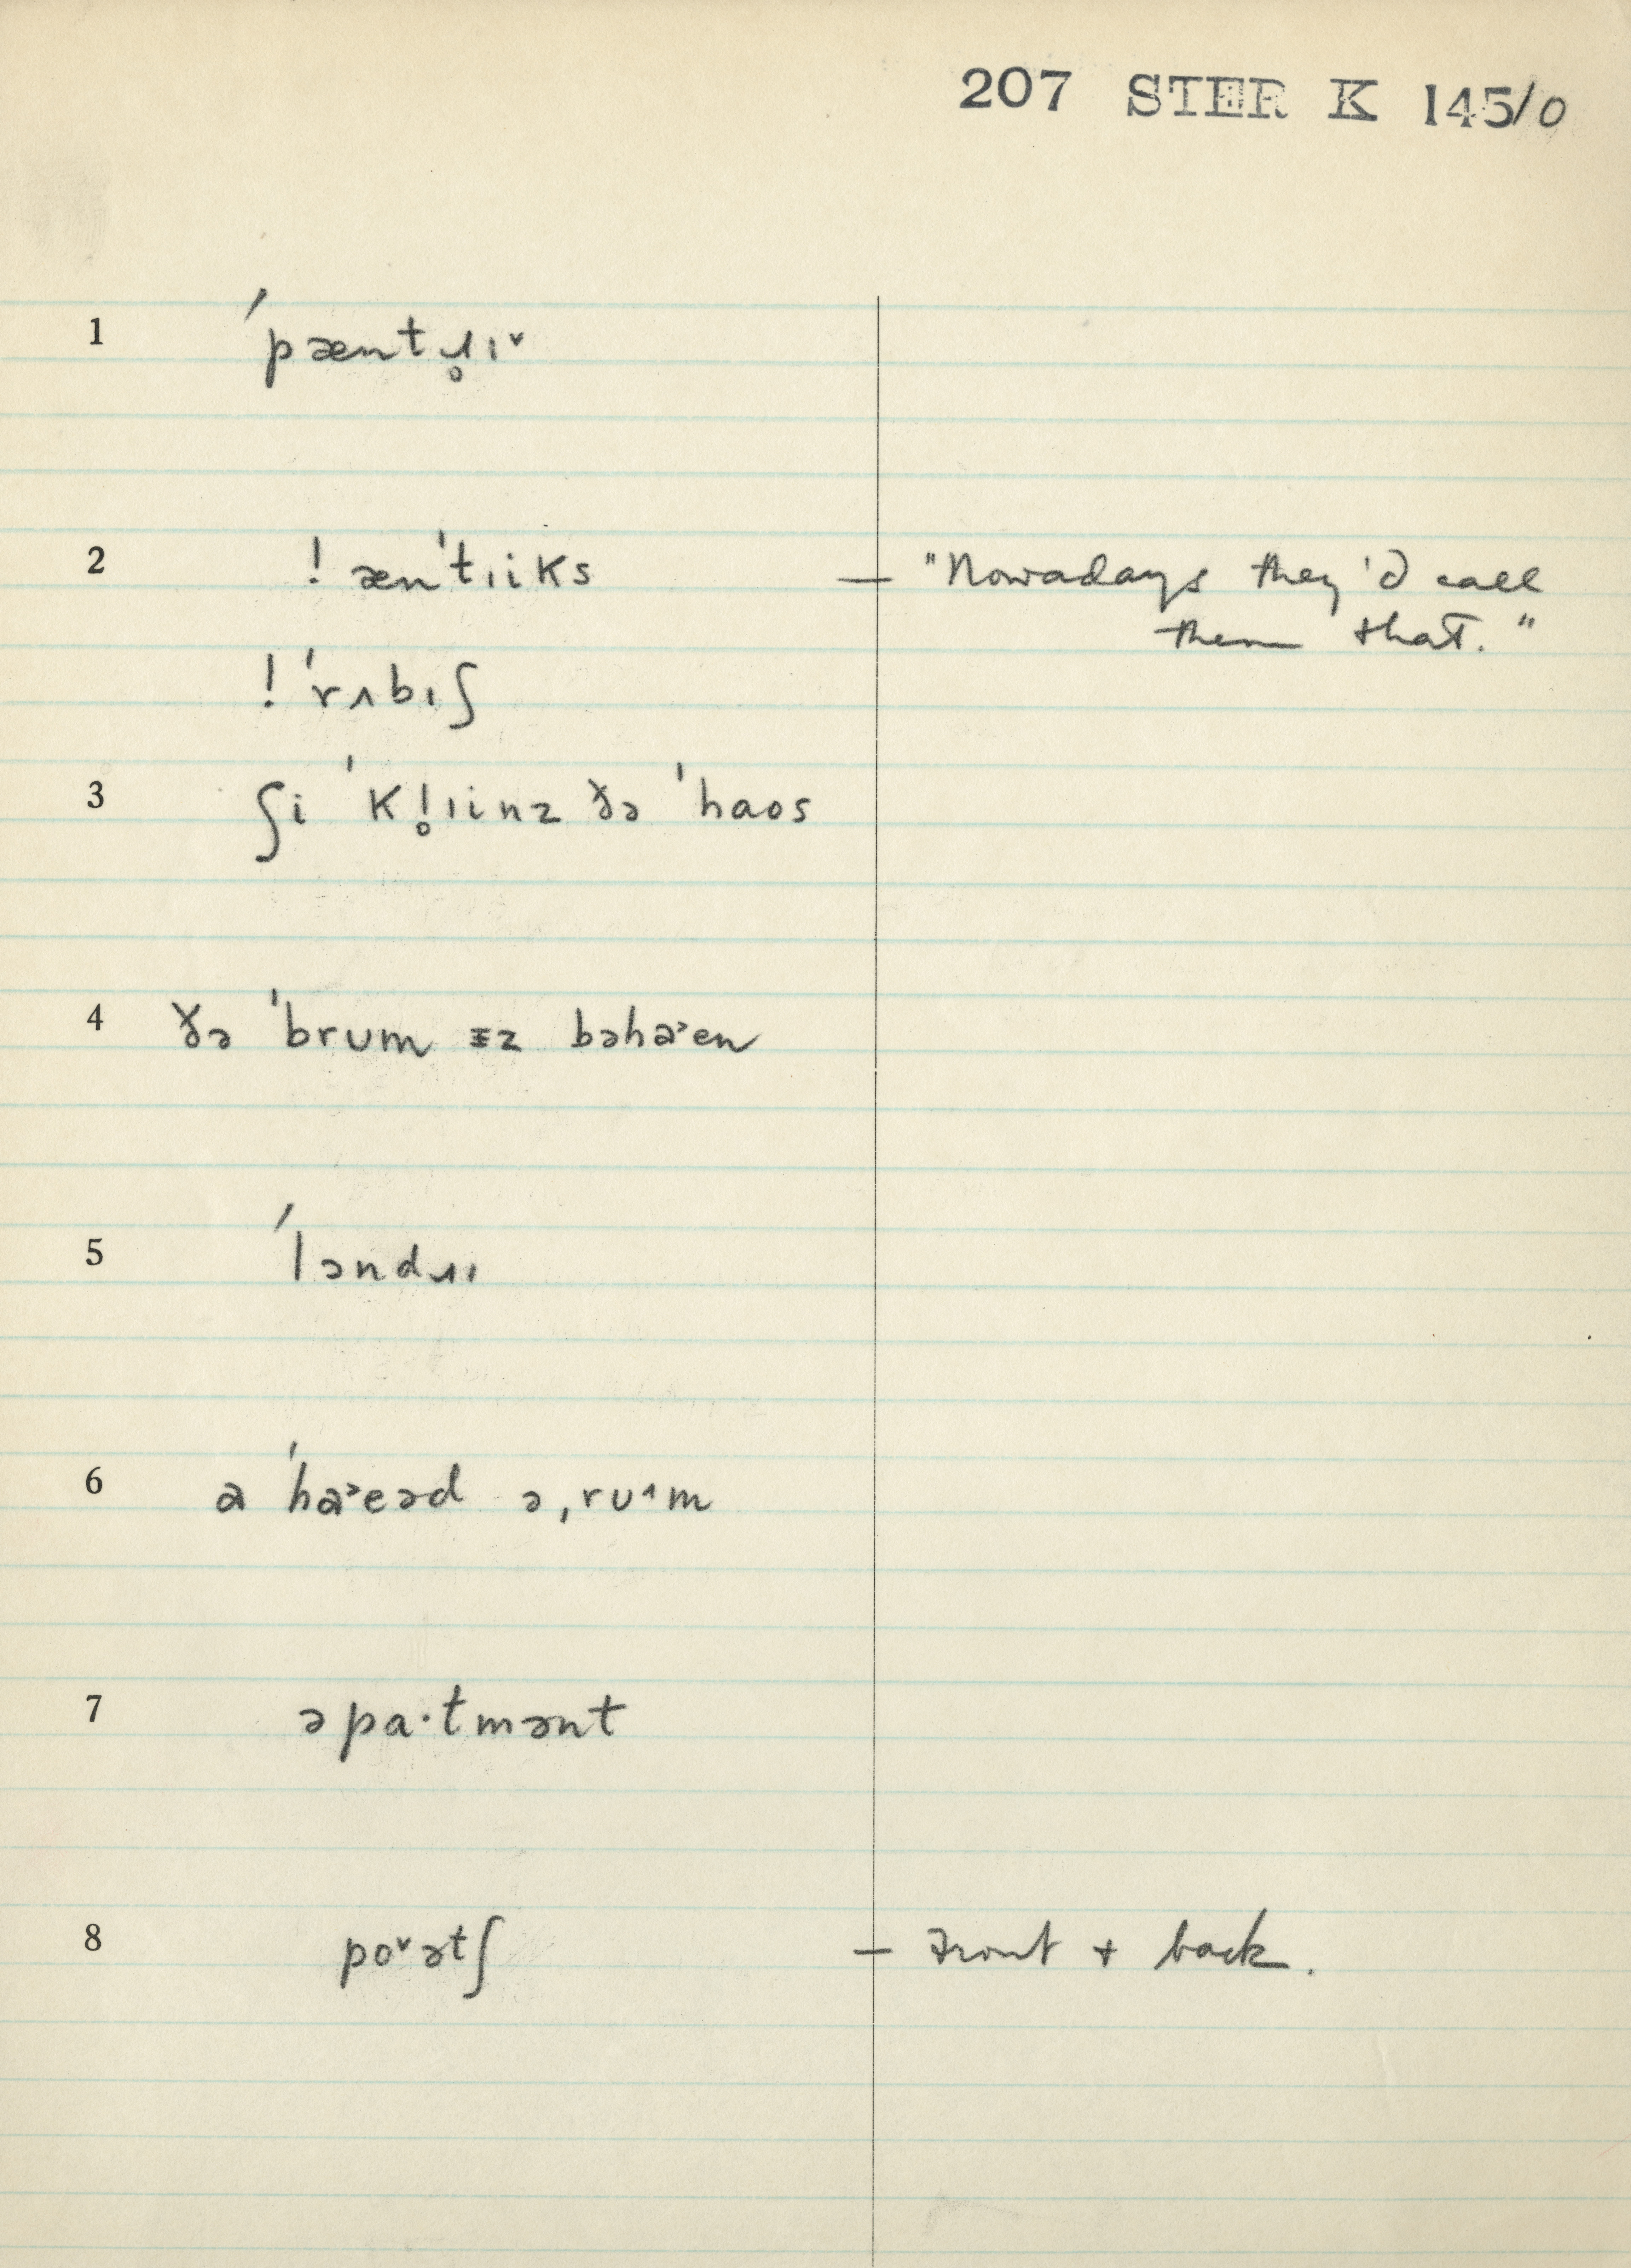 207 STER K 145/0
1 ˈpæntɹ̥ɪ˅
2 ! ænˈtɪiks — "Nowadays they'd call
them that."
! ˈrʌbɪʃ
3 ʃi ˈkl̥ɪinz ðə ˈhaos
4 ðə ˈbrum ɪz bəha˃en
5 ˈləndɹɪ
6 a ˈha˃eəd ə ˌrʊ˄m
7 əpa·tmənt
8 po˅ətʃ — front + back.